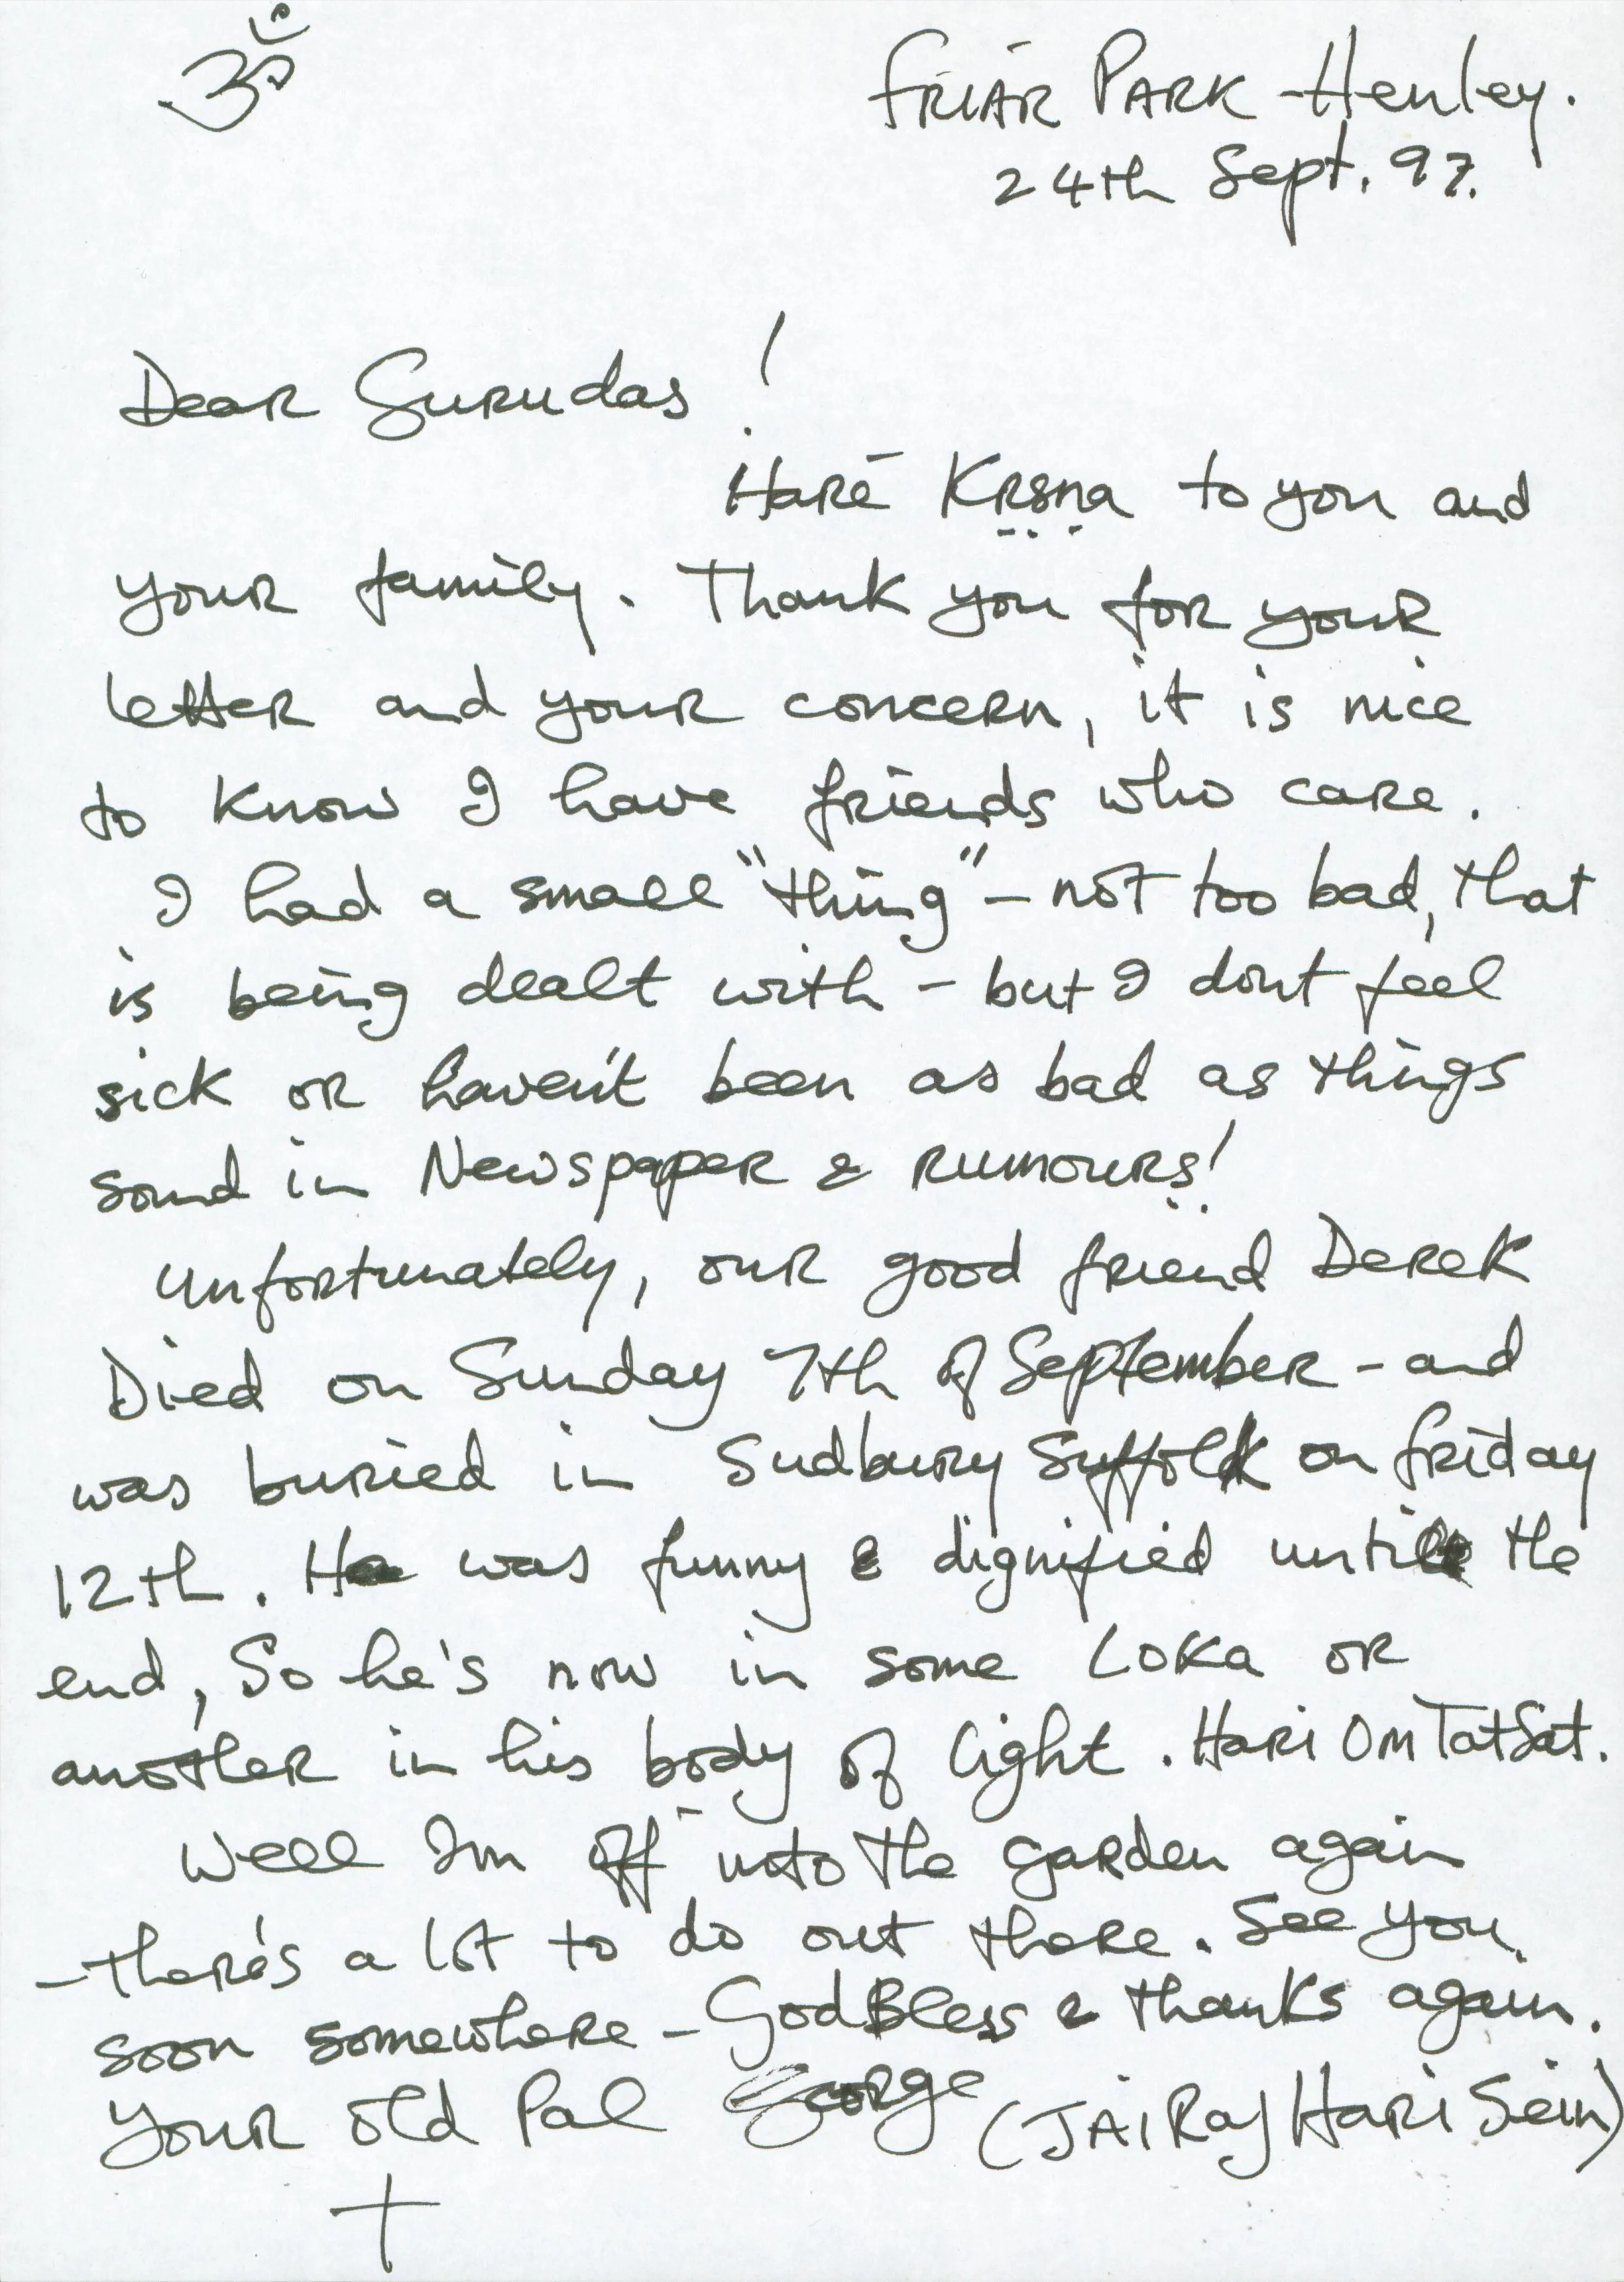 ॐ
FRIAR PARK - Henley.
24th Sept. 97.
Dear Gurudas !
Harē Kṛṣṇa to you and
your family. Thank you for your
letter and your concern, it is nice
to know I have friends who care.
I had a small "thing" - not too bad, that
is being dealt with - but I dont feel
sick or haven't been as bad as things
sound in Newspaper & RUMOURS!
Unfortunately, our good friend Derek
Died on Sunday 7th of September - and
was buried in Sudbury Suffolk on friday
12th. He was funny & dignified until the
end, So he's now in some Loka or
another in his body of light. Hari Om Tat Sat.
Well Im off into the garden again
- there's a lot to do out there. See you
soon somewhere - God Bless & thanks again.
Your old Pal George (JAi Raj Hari Sein)